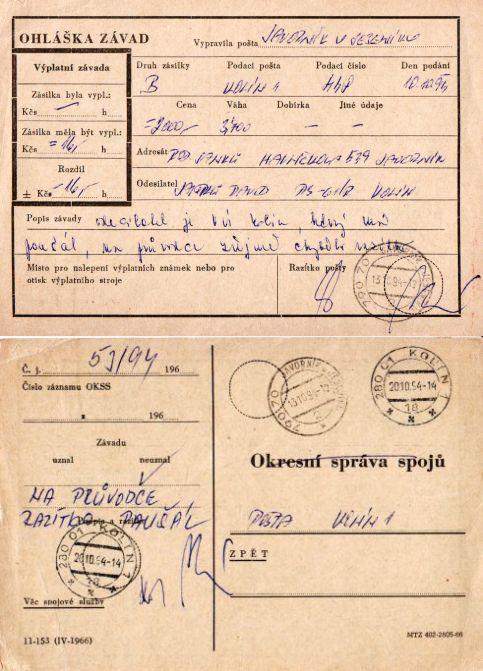 OHLÁŠKA ZÁVAD
Vypravila pošta JAVORNÍK V JESENÍKU
Výplatní závada
Zásilka byla vypl.:
Kčs — h
Zásilka měla být vypl.:
Kčs = 16,- h
Rozdíl
± Kčs -16,- h
Druh zásilky Podací pošta Podací číslo Den podání
B KOLÍN 1 10.10.94
Cena Váha Dobírka Jiné údaje
-2000,- — —
Adresát: 539 JAVORNÍK
Odesílatel DAVID KOLÍN
Popis závady odesílatel je
paušál, na průvodce zřejmě chybělo razítko
Místo pro nalepení výplatních známek nebo pro
otisk výplatního stroje
Razítko pošty
790 70
Č. j. 53/94 196
Číslo záznamu OKSS
196
Závadu
uznal neuznal
NA PRŮVODCE
RAZÍTKO PAUŠÁL
Podpis a razítko
280 01 KOLÍN 1
20.10.94-14
1a
Věc spojové služby
11-153 (IV-1966)
790 70 JAVORNÍK
13.10.94-12
280 01 KOLÍN 1
20.10.94-14
1a
Okresní správa spojů
POŠTA KOLÍN 1
ZPĚT
MTZ 402-2805-66